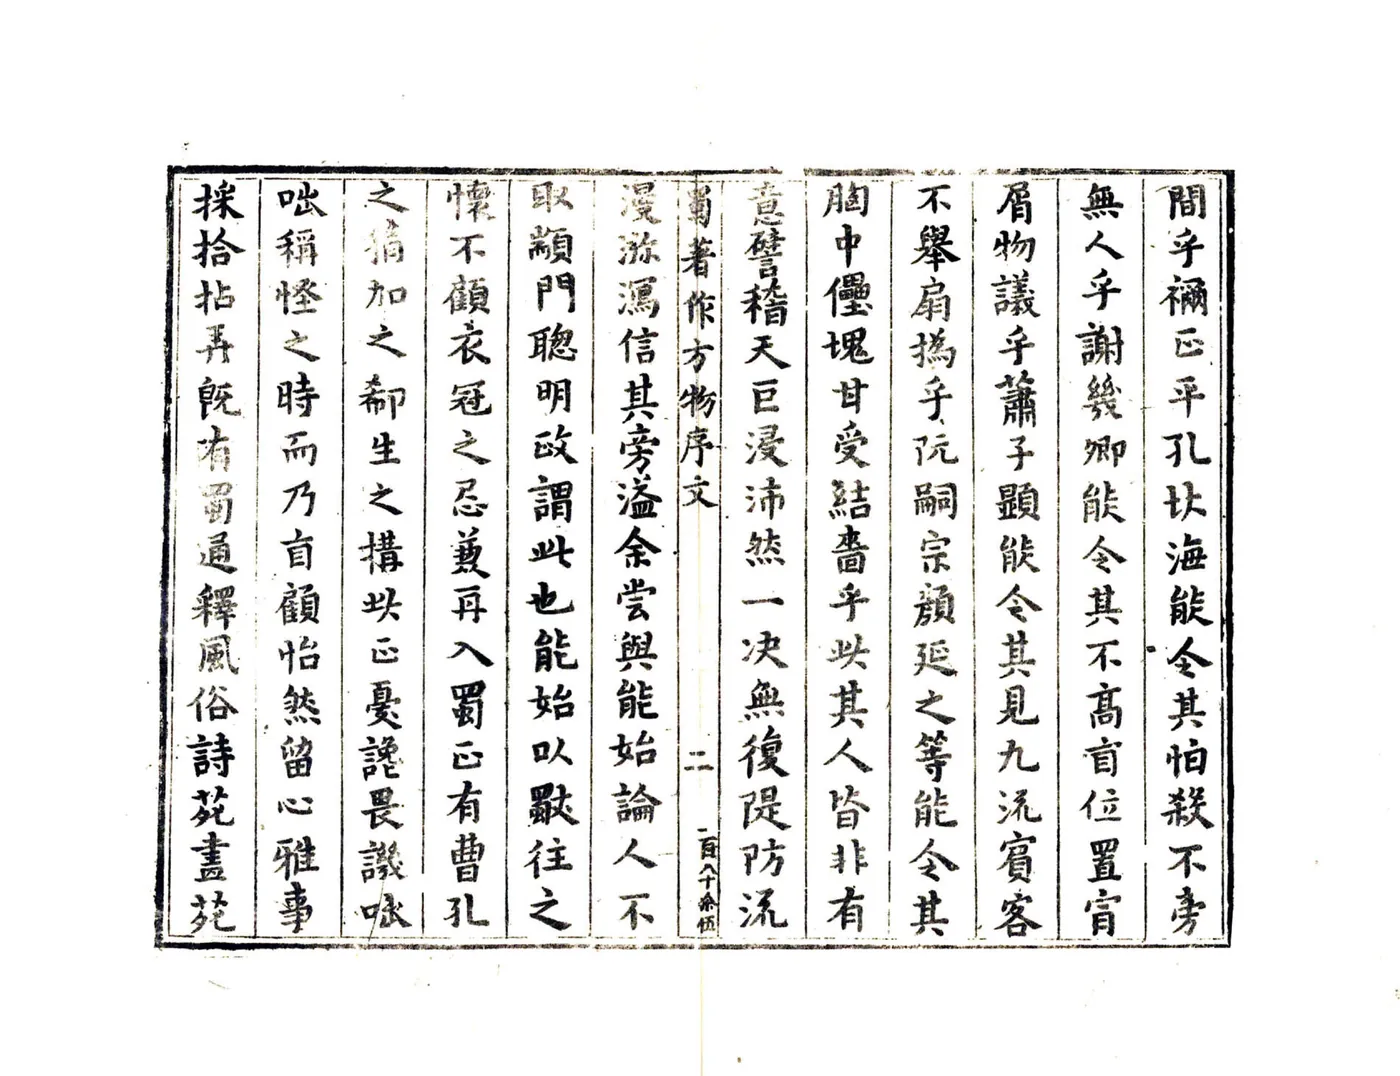 間乎禰正平孔北海能令其怕殺不旁
無人乎謝幾卿能令其不高盲位置官
屑物議乎蕭子顯能令其見九流賓客
不舉扇撝乎阮嗣宗顏延之等能令其
胸中儡塊甘受結嗇乎此其人皆非有
意譬稽天巨浸沛然一决無復隄防流
蜀著作方物序文
二
一百八十餘伍
漫游瀉信其旁溢余嘗與能始論人不
取顓門聰明政謂此也能始以蜀往之
懷不顧衣冠之忌兼再入蜀正有曹孔
之猜加之郗生之搆此正憂讒畏譏咄
咄稱怪之時而乃盲顧怡然留心雅事
採拾拈弄旣有蜀通釋風俗詩苑畫苑